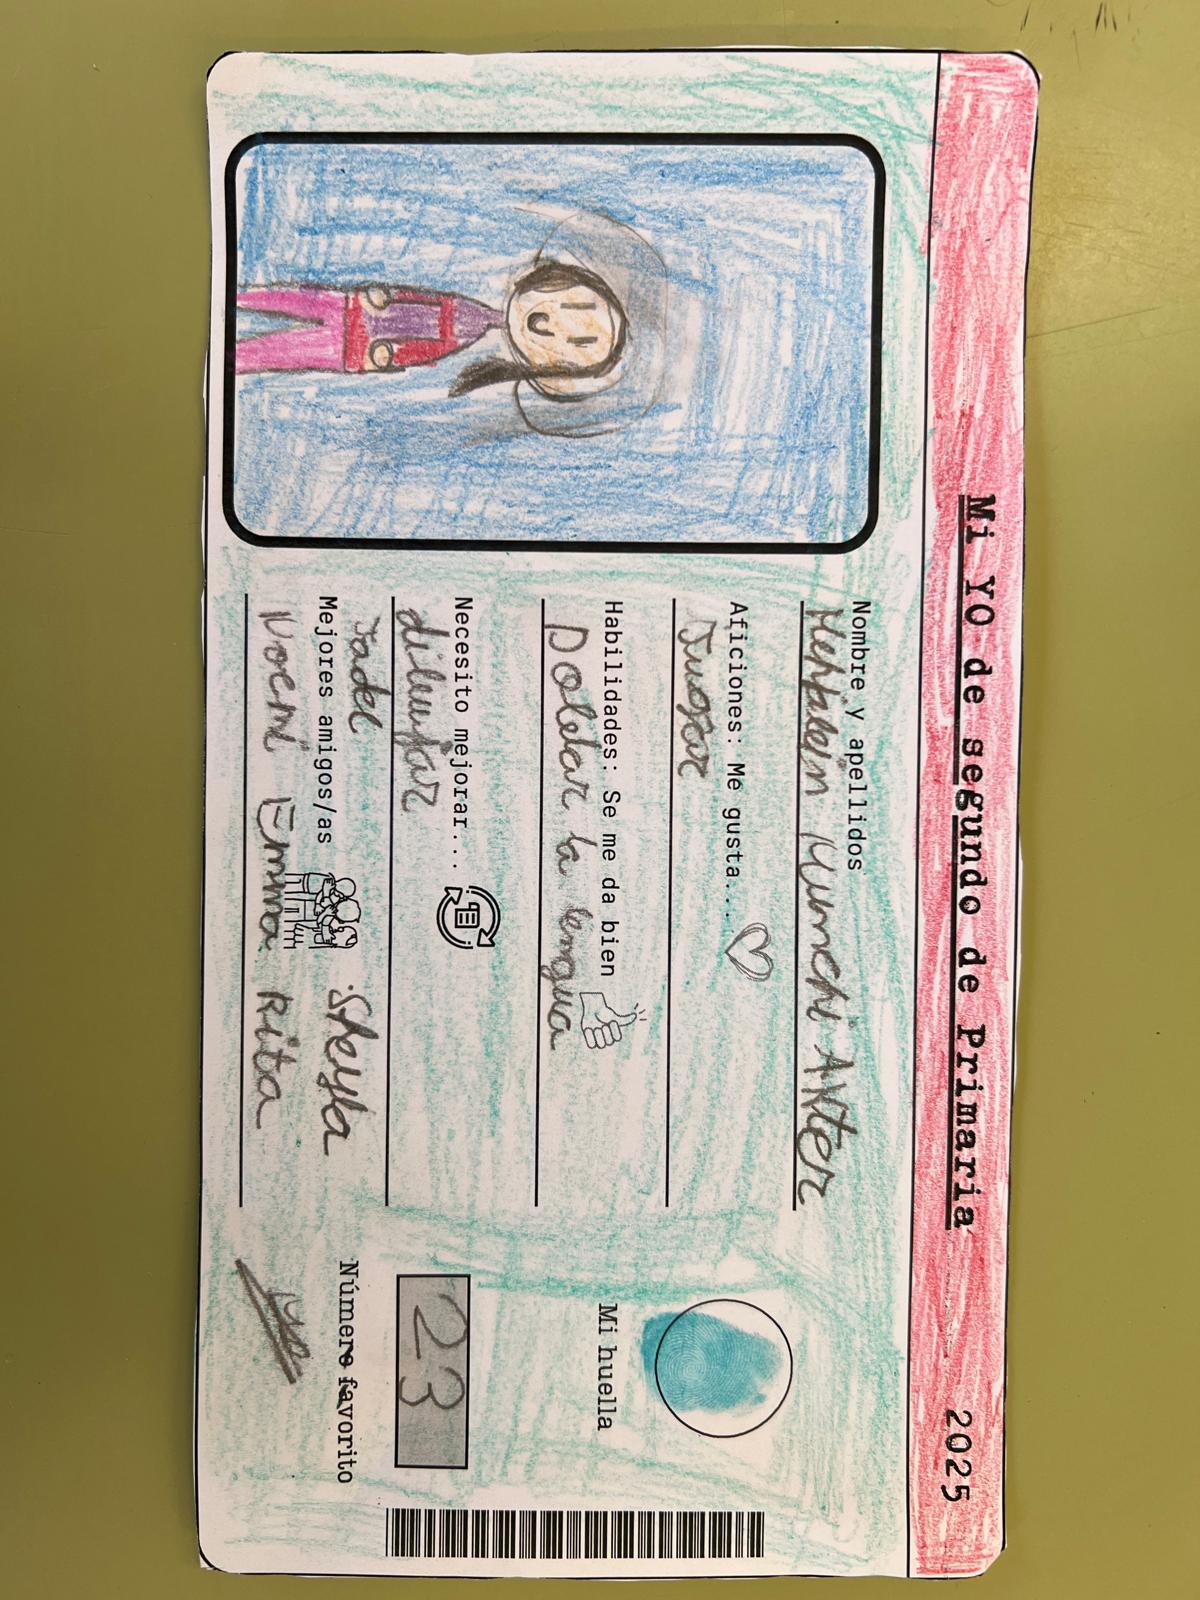 Mi YO de segundo de Primaria 2025
Nombre y apellidos
Munchi Akter
Aficiones: Me gusta...
Jugar
Habilidades: Se me da bien
Doblar la lengua
Necesito mejorar...
dibujar
Jadel
Mejores amigos/as
Sheyla
Noemi Emma Rita
Mi huella
23
Número favorito